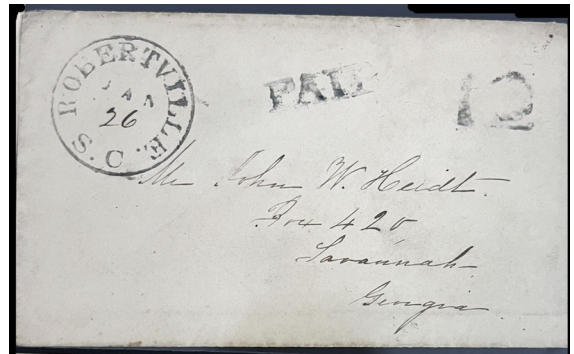 ROBERTVILLE S.C.
JAN
26
PAID
12
Mr John W. Heidt.
Box 420
Savannah
Georgia